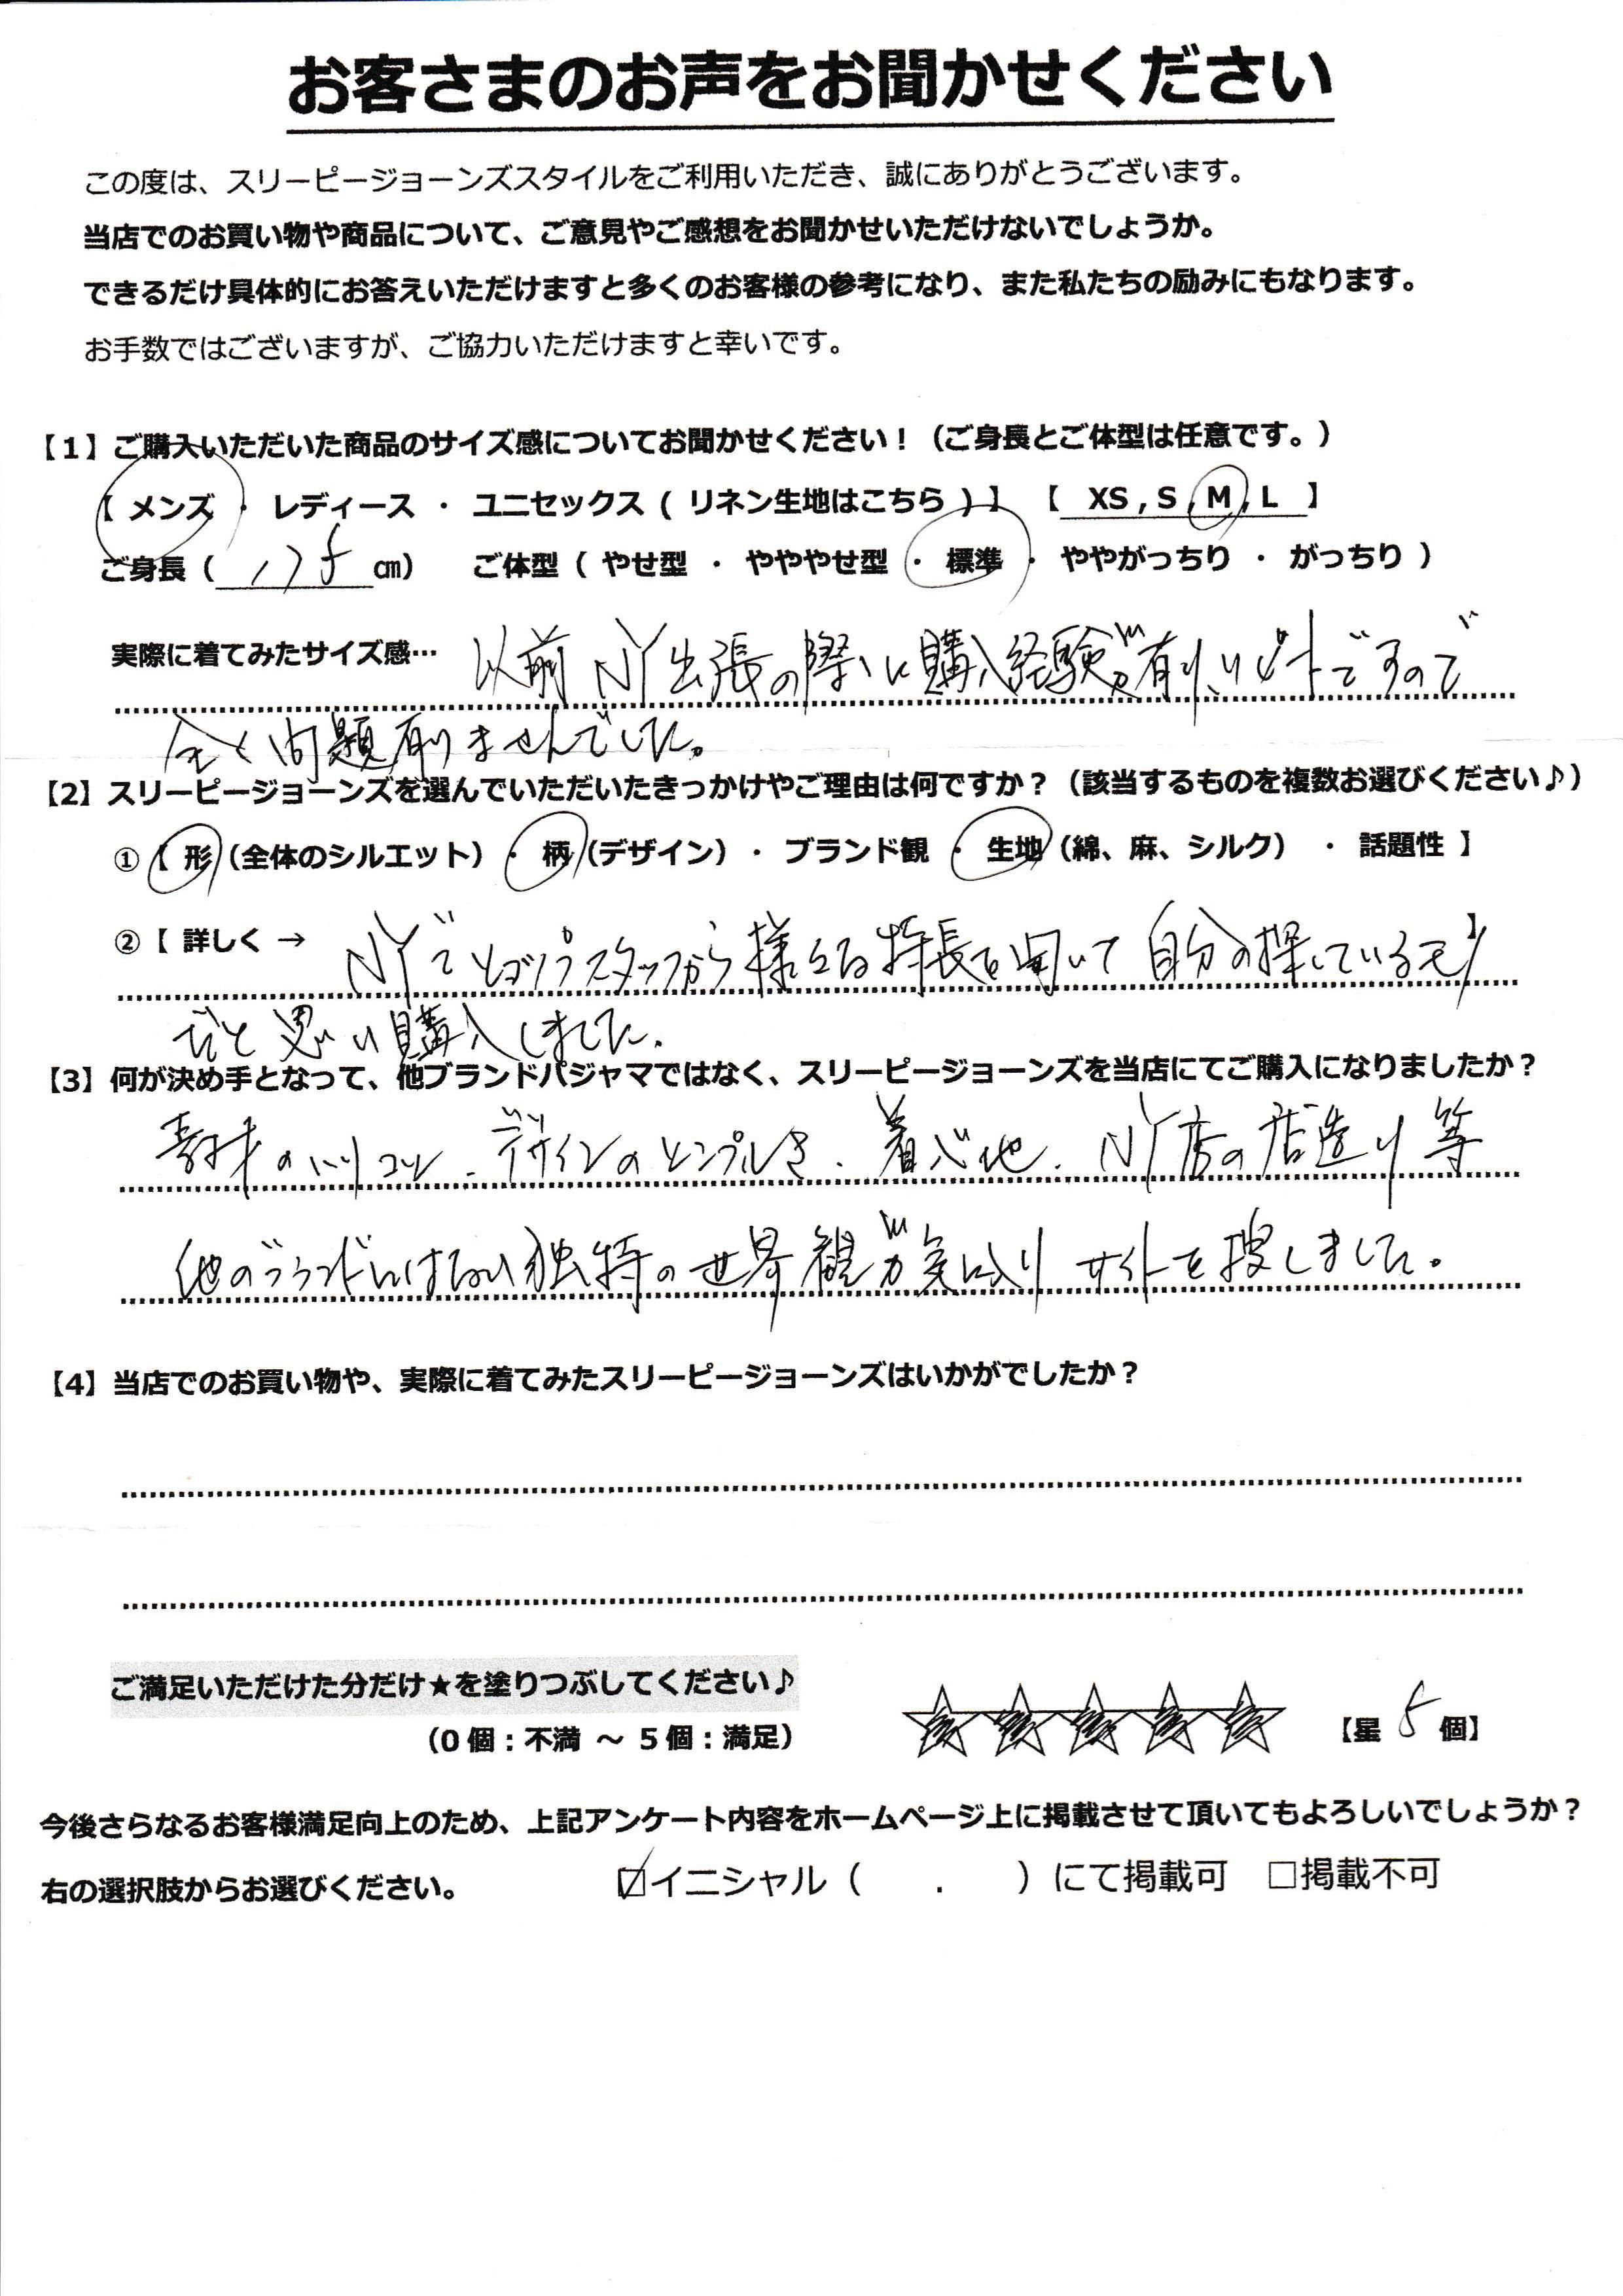 お客さまのお声をお聞かせください
この度は、スリーピージョーンズスタイルをご利用いただき、誠にありがとうございます。
当店でのお買い物や商品について、ご意見やご感想をお聞かせいただけないでしょうか。
できるだけ具体的にお答えいただけますと多くのお客様の参考になり、また私たちの励みにもなります。
お手数ではございますが、ご協力いただけますと幸いです。
【1】ご購入いただいた商品のサイズ感についてお聞かせください！（ご身長とご体型は任意です。）
【 メンズ ・ レディース ・ ユニセックス ( リネン生地はこちら ) 】 【 XS , S , M , L 】
ご身長（ 175 ㎝） ご体型（ やせ型 ・ ややせ型 ・ 標準 ・ ややがっちり ・ がっちり ）
実際に着てみたサイズ感… 以前NY出張の際に購入経験が有り、リピートですので
全く問題有りませんでした。
【2】スリーピージョーンズを選んでいただいたきっかけやご理由は何ですか？（該当するものを複数お選びください♪）
①【 形（全体のシルエット）・ 柄（デザイン）・ ブランド観 ・ 生地（綿、麻、シルク） ・ 話題性 】
②【 詳しく → NYでショップスタッフから様々な特長を聞いて自分の探しているモノ 】
だと思い購入しました。
【3】何が決め手となって、他ブランドパジャマではなく、スリーピージョーンズを当店にてご購入になりましたか？
素材のハリコシ、デザインのシンプルさ、着心地、NY店の店造り等
他のブランドにはない独特の世界観が気に入りサイトを捜しました。
【4】当店でのお買い物や、実際に着てみたスリーピージョーンズはいかがでしたか？
ご満足いただけた分だけ★を塗りつぶしてください♪
（0 個：不満 ～ 5 個：満足） 【星 5 個】
今後さらなるお客様満足向上のため、上記アンケート内容をホームページ上に掲載させて頂いてもよろしいでしょうか？
右の選択肢からお選びください。 ☑イニシャル（ ． ）にて掲載可 □掲載不可